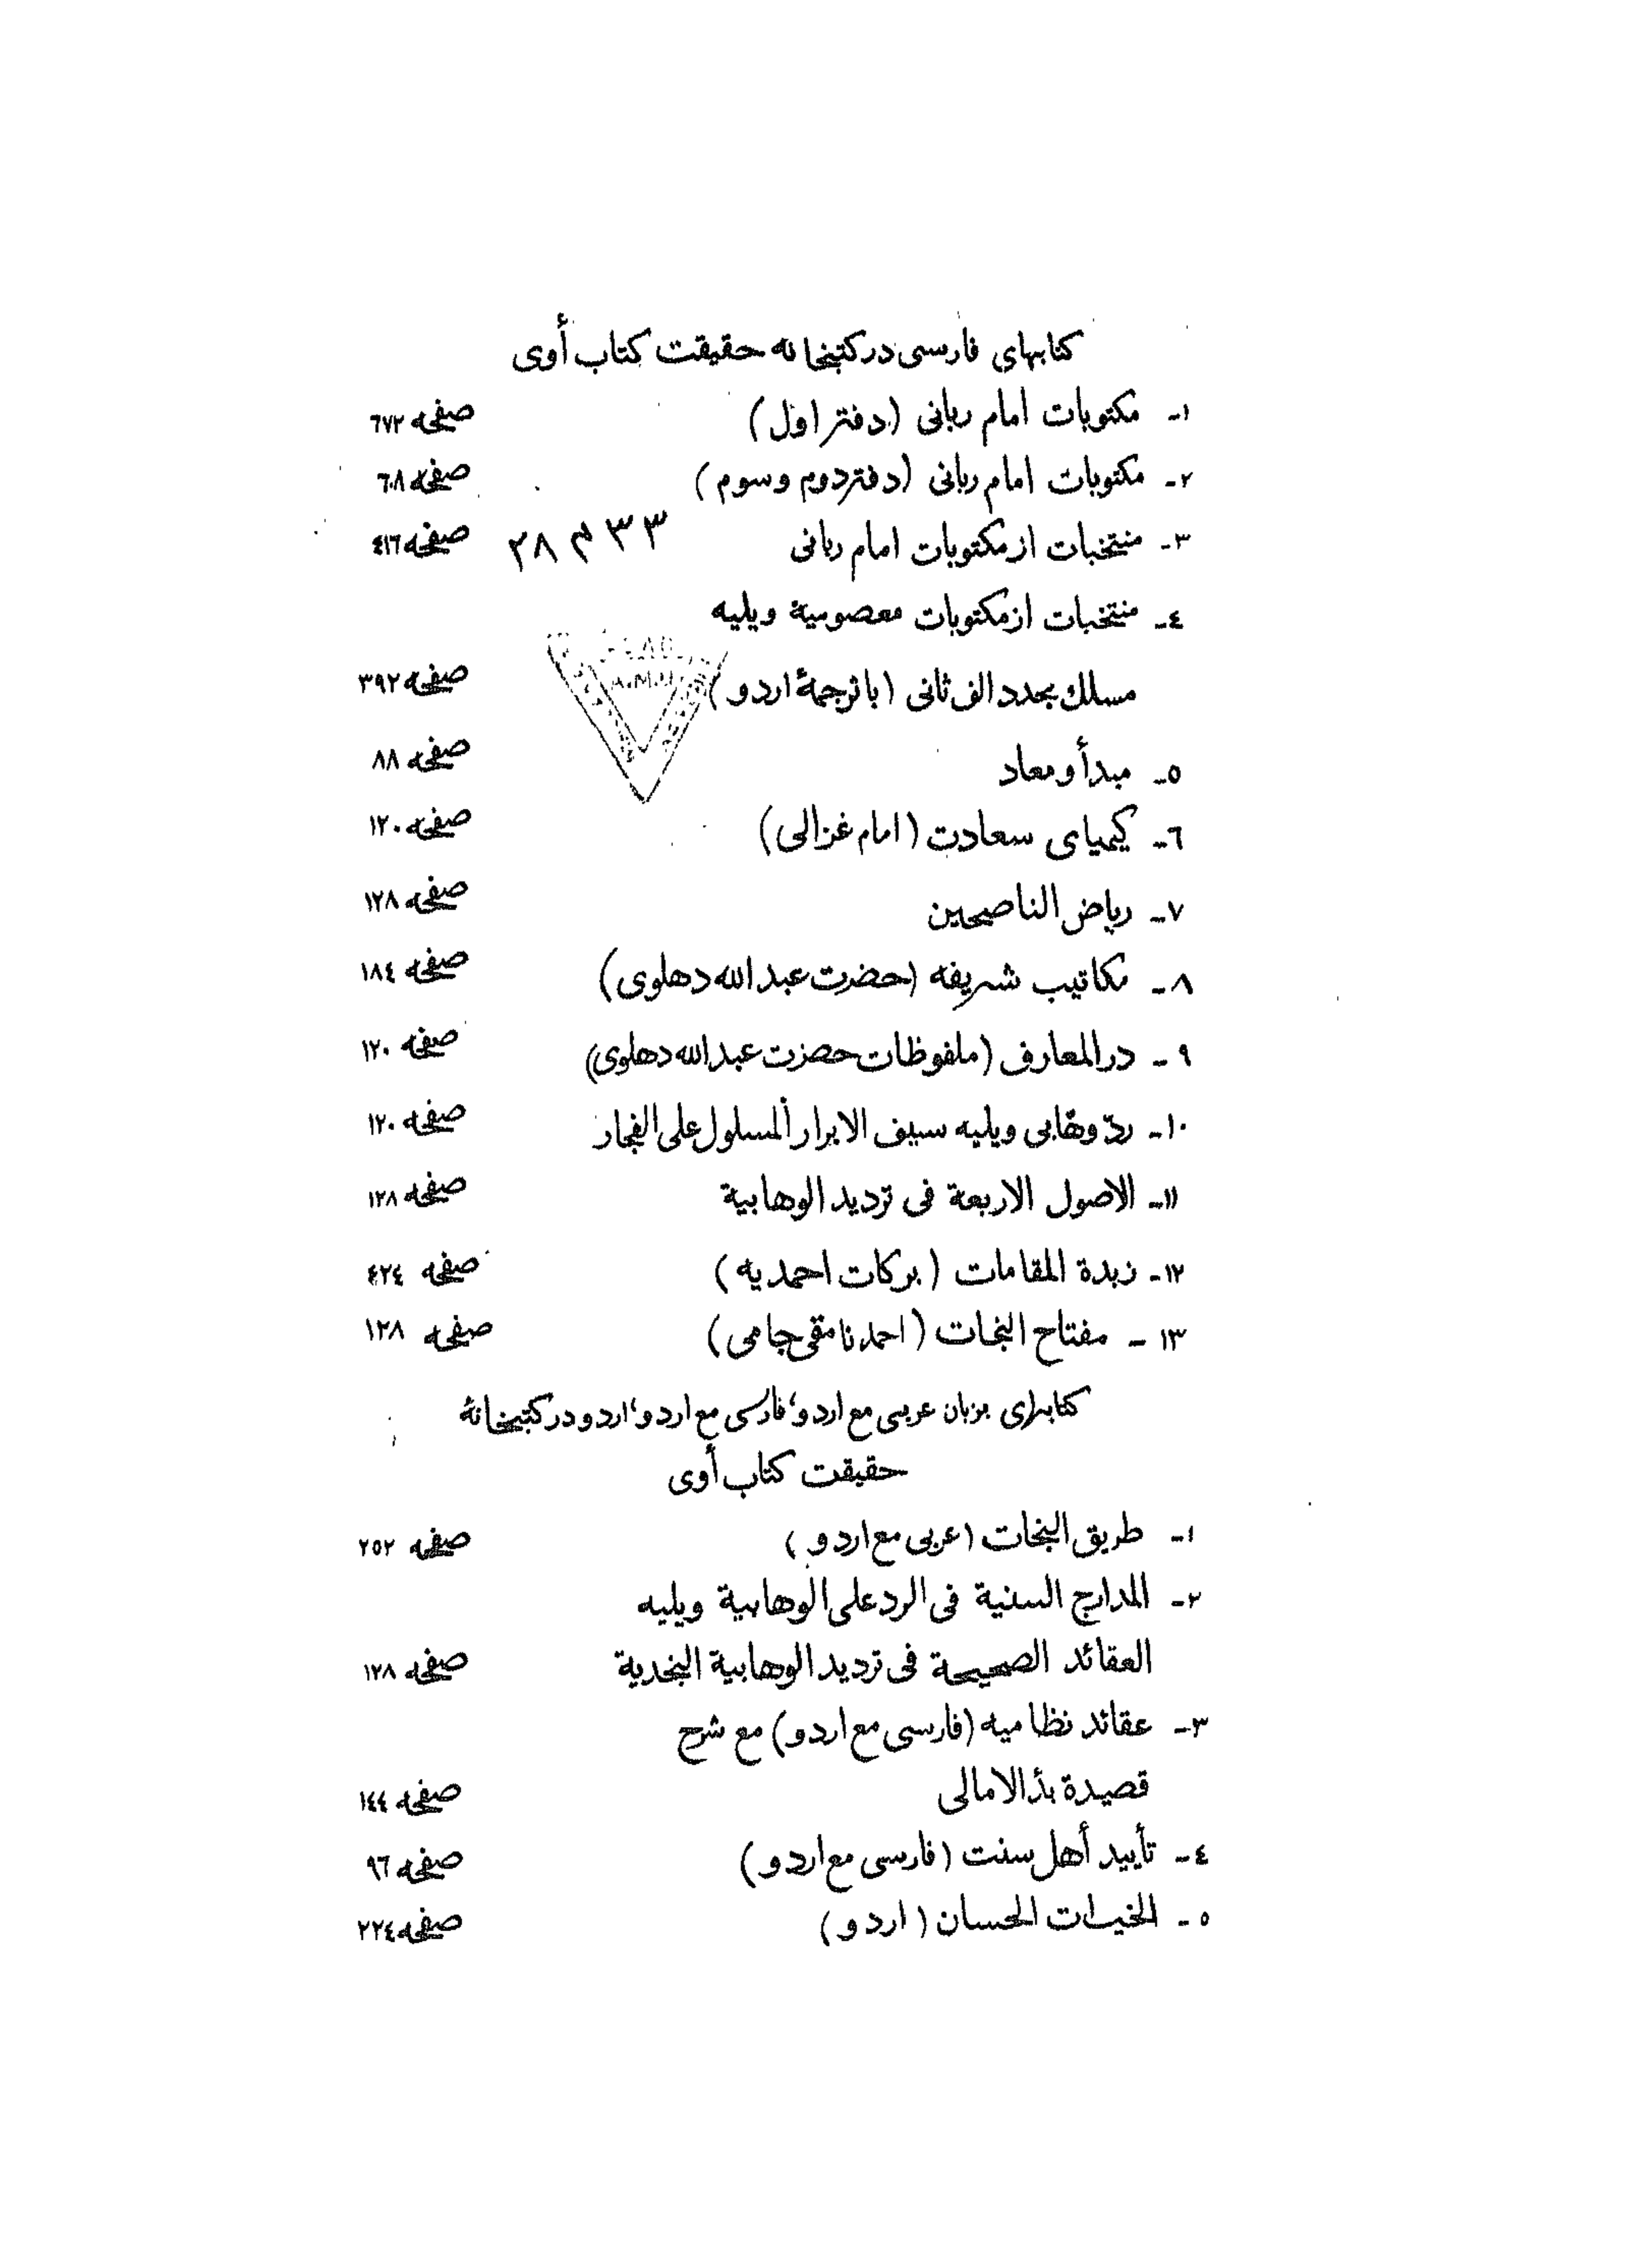 کتابهای فارسی در کتبخانه حقیقت کتاب أوی
١- مکتوبات امام ربانی (دفتر اول) صفحه ٦٧٢
٢- مکتوبات امام ربانی (دفتر دوم و سوم) صفحه ٦٠٨
٣- منتخبات از مکتوبات امام ربانی صفحه ٤١٦
٣٣ م ٢٨
٤- منتخبات از مکتوبات معصومیة ویلیه
مسلك مجدد الف ثانی (با ترجمهٔ اردو) صفحه ٣٩٢
A.M.U
٥- مبدأ و معاد صفحه ٨٨
٦- کیمیای سعادت (امام غزالی) صفحه ١٢٠
٧- ریاض الناصحین صفحه ١٢٨
٨- مکاتیب شریفه (حضرت عبد الله دهلوی) صفحه ١٨٤
٩- در المعارف (ملفوظات حضرت عبد الله دهلوی) صفحه ١٢٠
١٠- ردّ وهّابی ویلیه سیف الابرار المسلول علی الفجار صفحه ١٢٠
١١- الاصول الاربعة فی تردید الوهابیة صفحه ١٢٨
١٢- زبدة المقامات (برکات احمدیه) صفحه ٤٢٤
١٣- مفتاح النجات (احمد نامقی جامی) صفحه ١٢٨
کتابهای بزبان عربی مع اردو، فارسی مع اردو، اردو در کتبخانهٔ
حقیقت کتاب أوی
١- طریق النجات (عربی مع اردو) صفحه ٢٥٢
٢- المدارج السنیة فی الرد علی الوهابیة ویلیه
العقائد الصحیحة فی تردید الوهابیة النجدیة صفحه ١٢٨
٣- عقائد نظامیه (فارسی مع اردو) مع شرح
قصیدة بدأ الامالی صفحه ١٤٤
٤- تأیید أهل سنت (فارسی مع اردو) صفحه ٩٦
٥- الخیرات الحسان (اردو) صفحه ٢٢٤